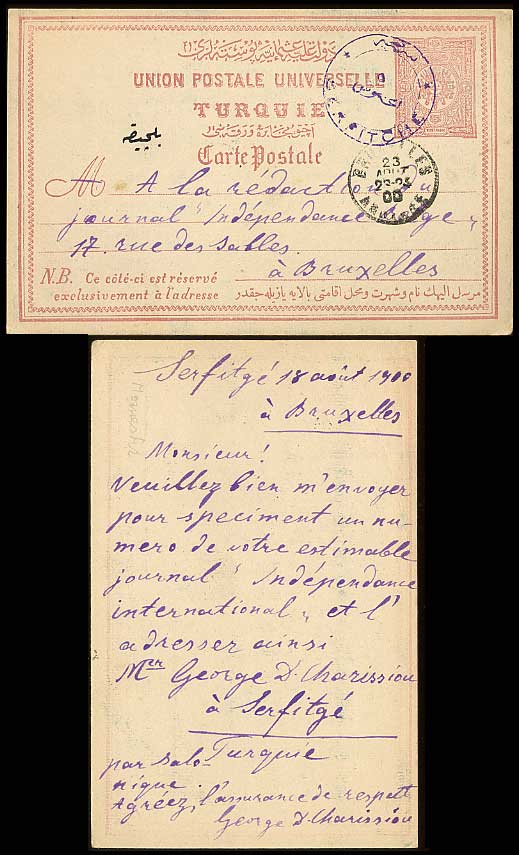 دولت عليه عثمانيه پوسته لرى
UNION POSTALE UNIVERSELLE
TURQUIE
Carte Postale
M A la rédaction du
journal "Indépendance
17. rue des Sables.
à Bruxelles
N.B. Ce côté-ci est réservé
exclusivement à l'adresse
23
AOUT
00
Serfitgé 18 août 1900
à Bruxelles
Monsieur!
Veuillez bien m'envoyer
pour speciment un nu-
mero de votre estimable
journal "Indépendance
international" et l'
adresser ainsi
George D. Charissiou
à Serfitgé
par Salo Turquie
nique.
Agréez, l'assurance de respect
George D. Charissiou